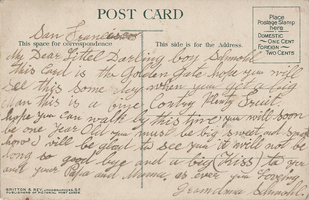 POST CARD
San Francisco
This space for correspondence
This side is for the Address.
Place
Postage Stamp
here
DOMESTIC
ONE CENT
FOREIGN
TWO CENTS
My Dear Littel Darling boy
this Card is the Golden Gate hope you will
see this some day when you get a big
man this is a fine Contry Plenty Fruit
hope you can walk by this time you will soon
be one Year Old you must be big sweet and
I will be glad to see you it will not be
long so good bye and a big (Kiss) to you
and your Papa and Mamma, as ever your Loving,
Grandma
BRITTON & REY,
PUBLISHERS OF PICTORIAL POST CARDS